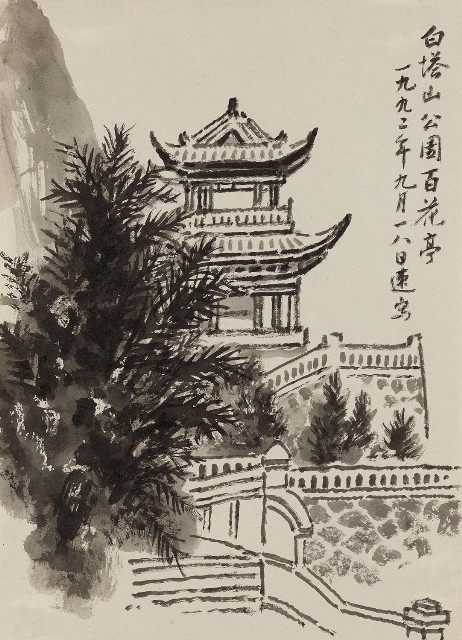 白塔山公園百花亭
一九九二年九月一八日速写